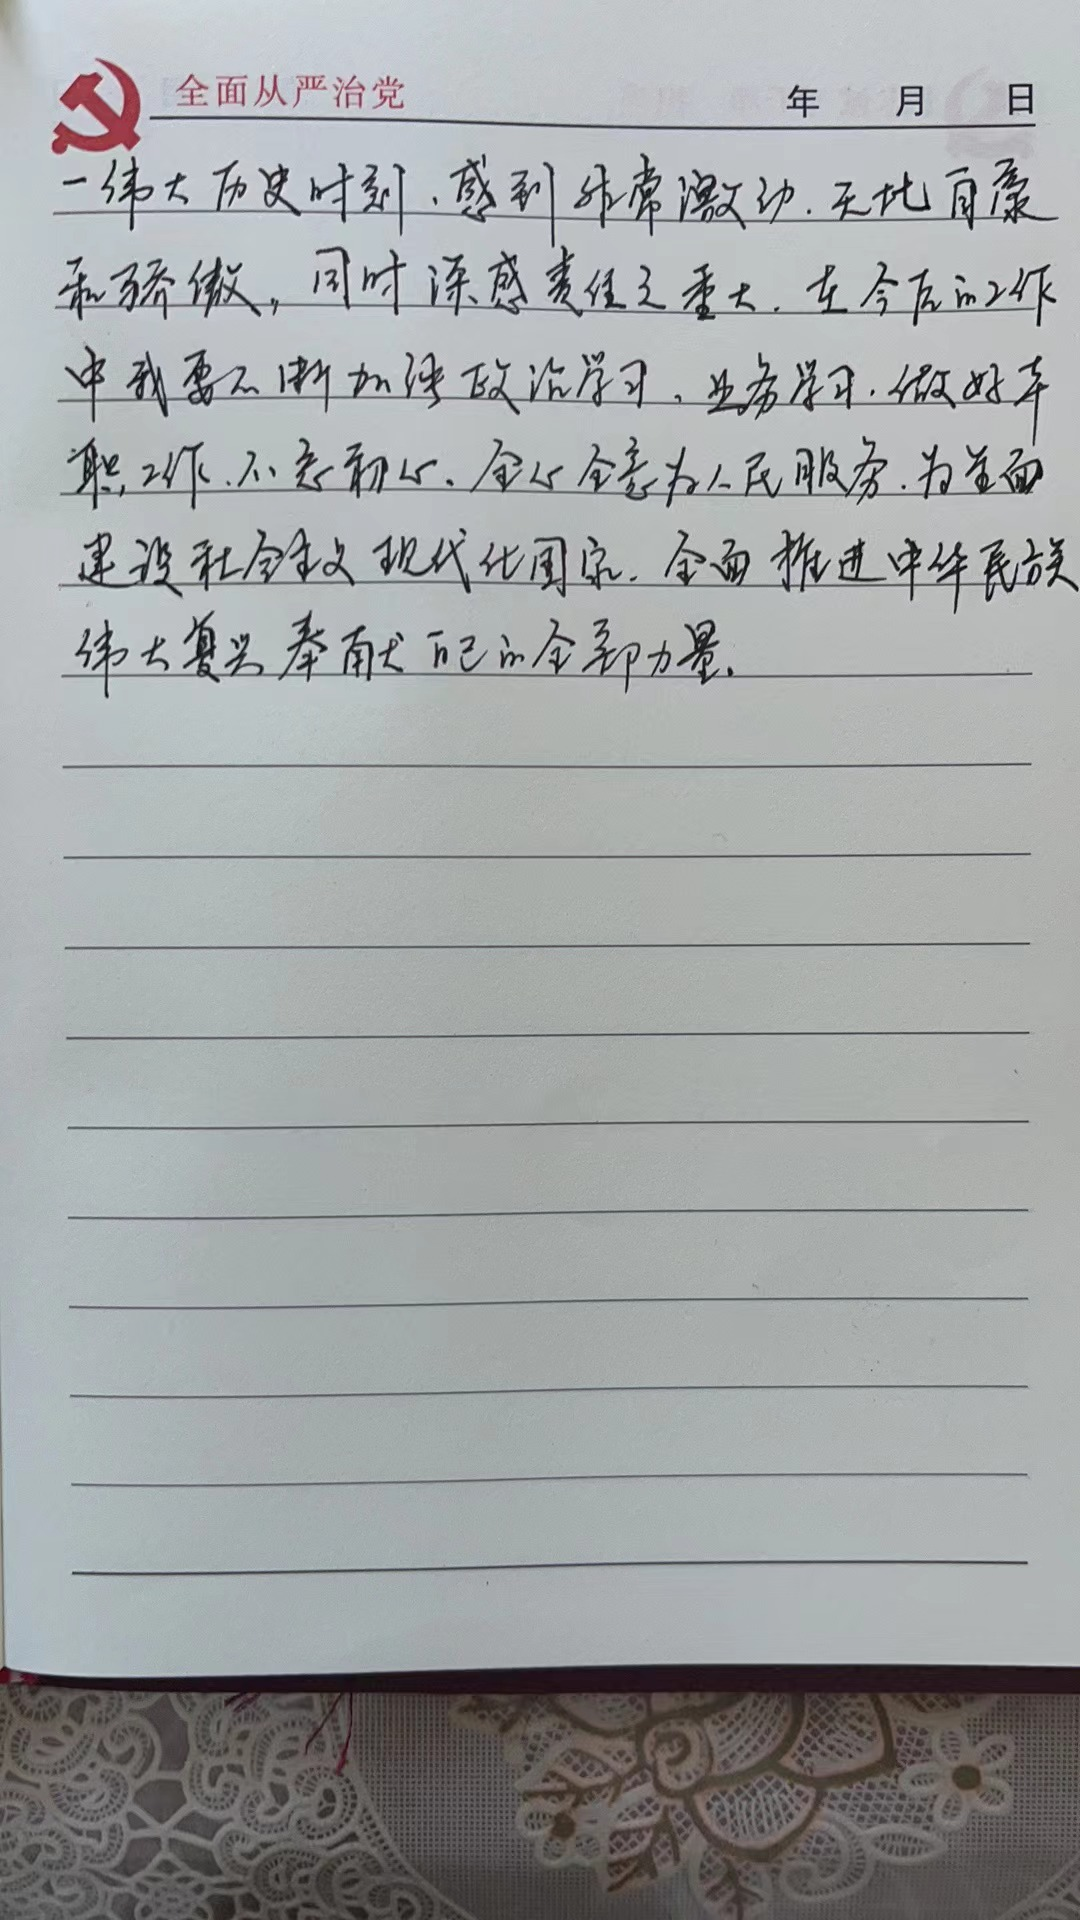 全面从严治党 年 月 日
一伟大历史时刻、感到非常激动、无比自豪
和骄傲，同时深感责任之重大．在今后的工作
中我要不断加强政治学习、业务学习．做好本
职工作．不忘初心、全心全意为人民服务．为全面
建设社会主义现代化国家．全面推进中华民族
伟大复兴奉献自己的全部力量。